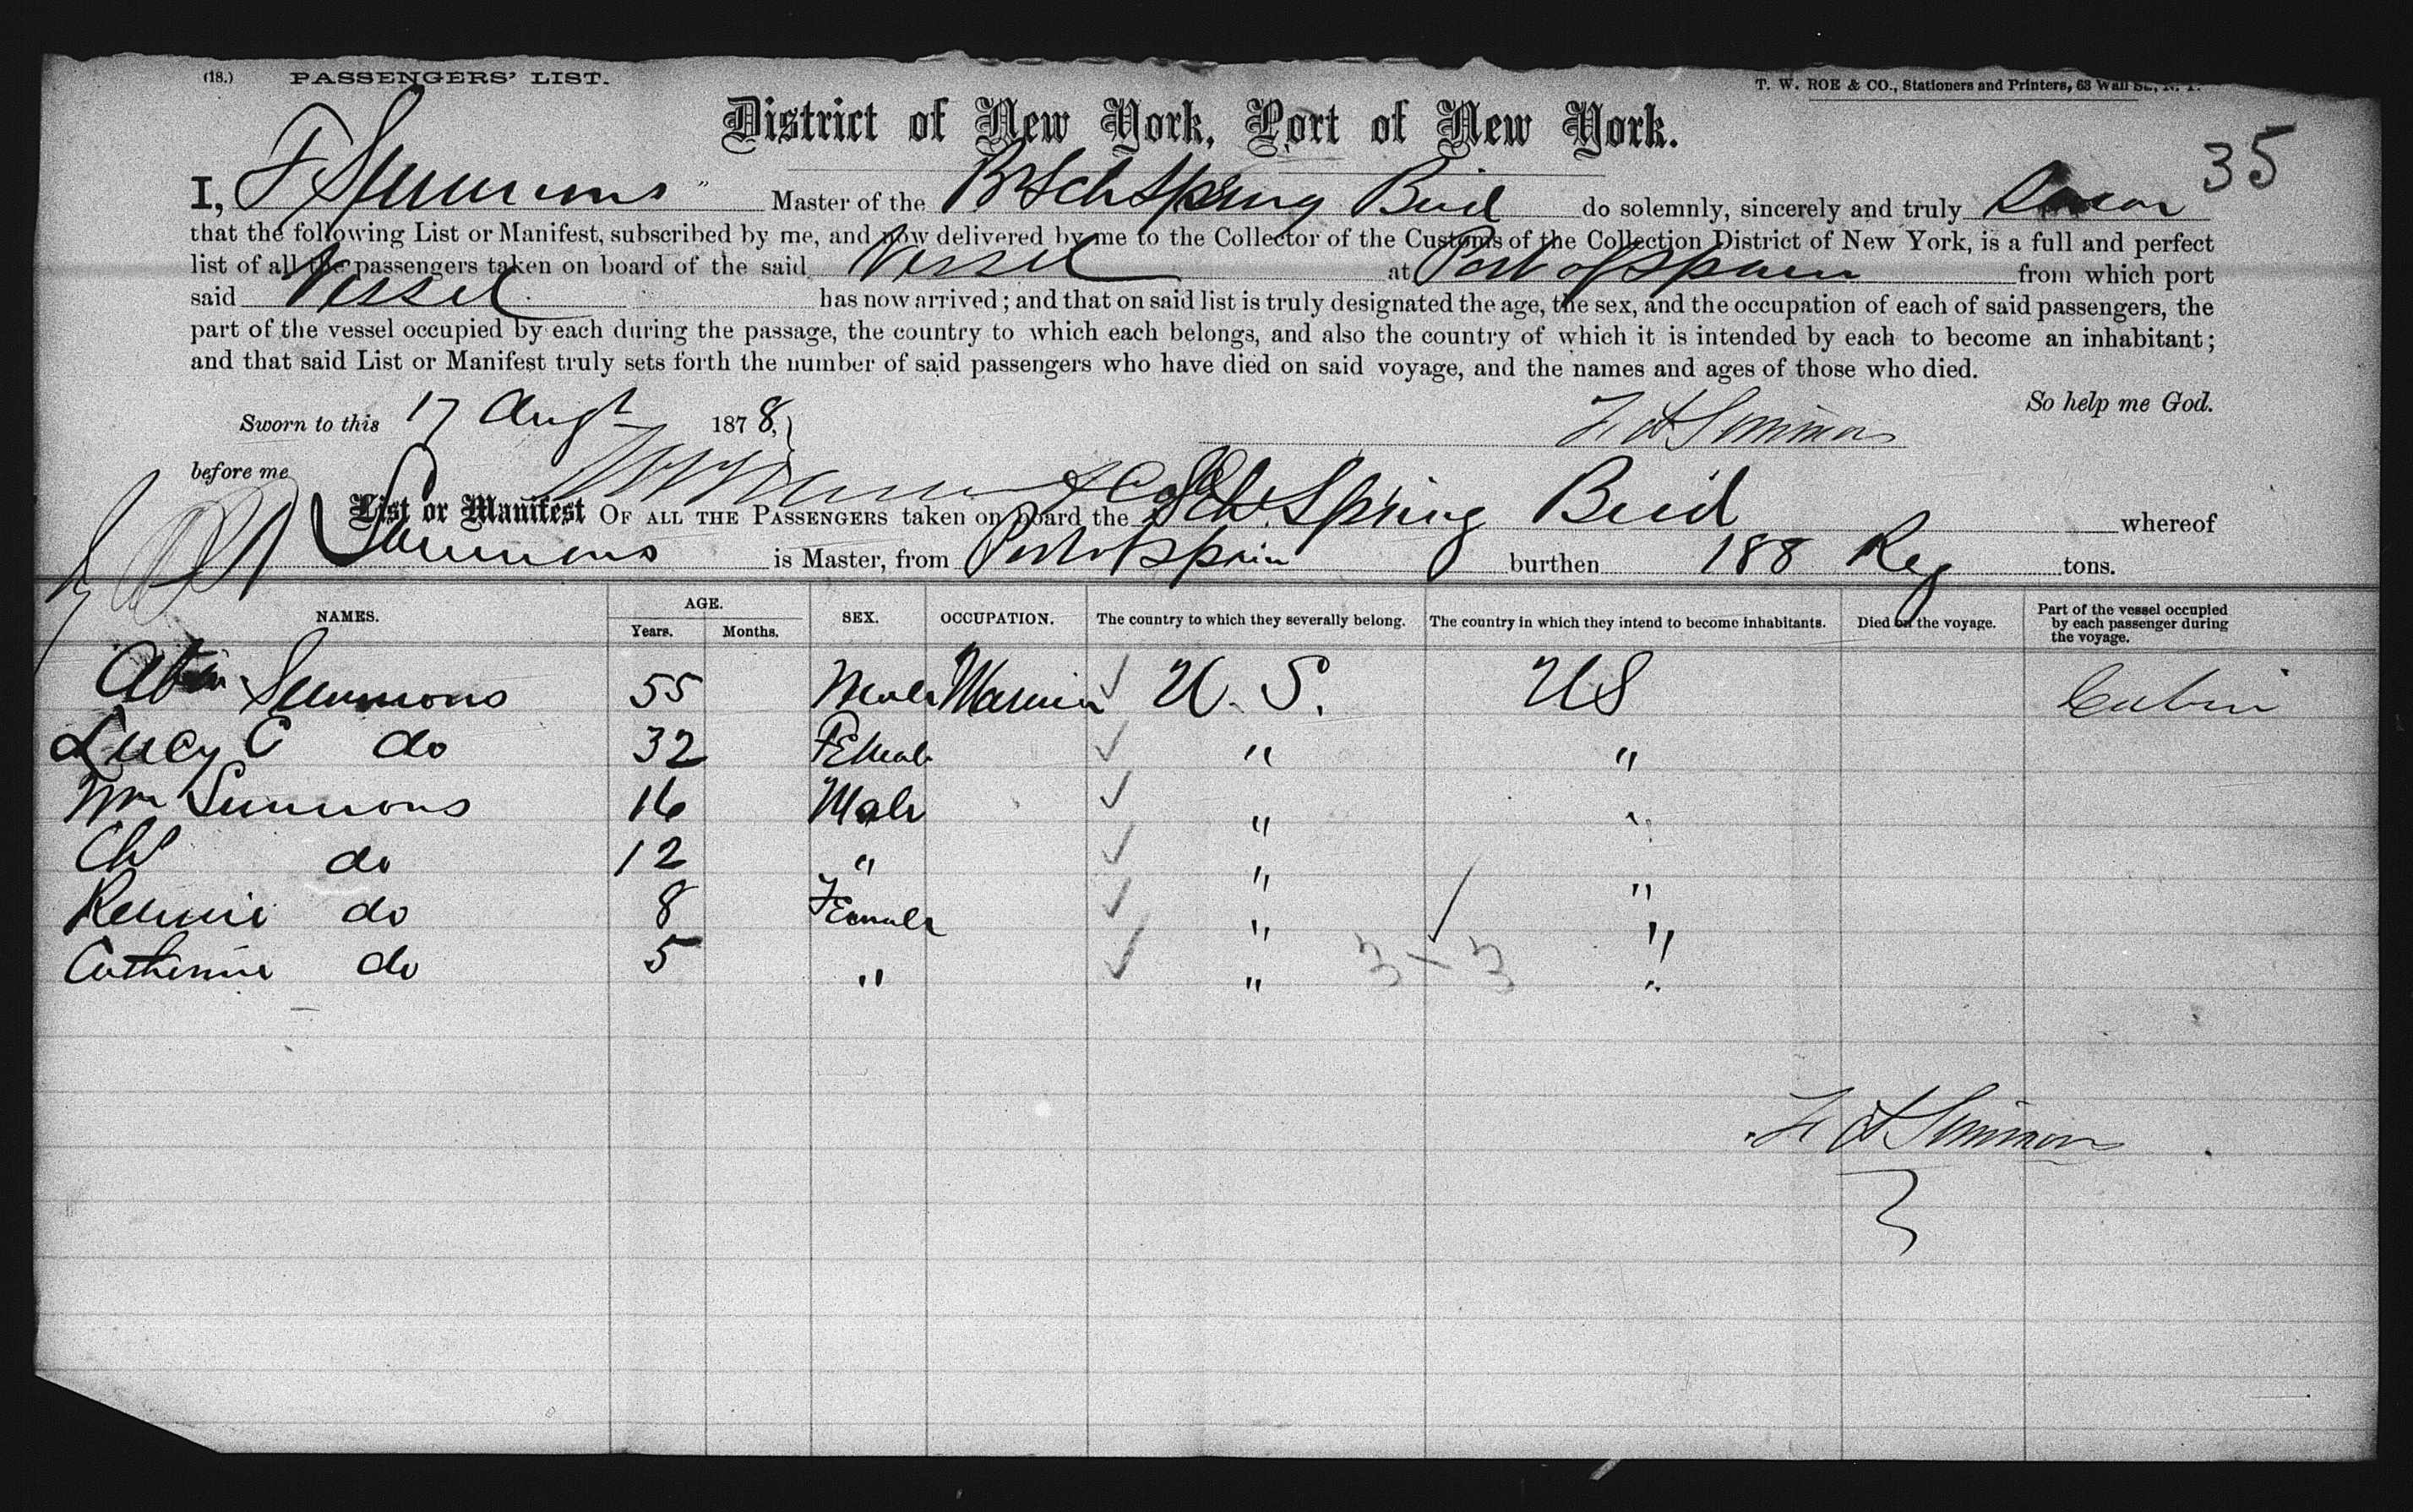 (18.) PASSENGERS' LIST.
T. W. ROE & CO., Stationers and Printers, 63 Wall St., N. Y.
District of New York, Port of New York.
35
I, F Simmons Master of the Br Sch Spring Bird do solemnly, sincerely and truly Swear
that the following List or Manifest, subscribed by me, and now delivered by me to the Collector of the Customs of the Collection District of New York, is a full and perfect
list of all the passengers taken on board of the said Vessel at Port of Spain from which port
said Vessel has now arrived; and that on said list is truly designated the age, the sex, and the occupation of each of said passengers, the
part of the vessel occupied by each during the passage, the country to which each belongs, and also the country of which it is intended by each to become an inhabitant;
and that said List or Manifest truly sets forth the number of said passengers who have died on said voyage, and the names and ages of those who died.
So help me God.
Sworn to this 17 Augt 1878,
F A Simmons
before me
List or Manifest OF ALL THE PASSENGERS taken on board the Sch Spring Bird whereof
Simmons is Master, from Port of Spain burthen 188 Reg tons.
NAMES. AGE. Years. Months. SEX. OCCUPATION. The country to which they severally belong. The country in which they intend to become inhabitants. Died on the voyage. Part of the vessel occupied by each passenger during the voyage.
Simmons 55 Male Marin U. S. US Cabin
Lucy C do 32 Female " "
Wm Simmons 16 Male " "
do 12 " " "
do 8 Female " "
Catherine do 5 " " "
3 - 3
F A Simmons